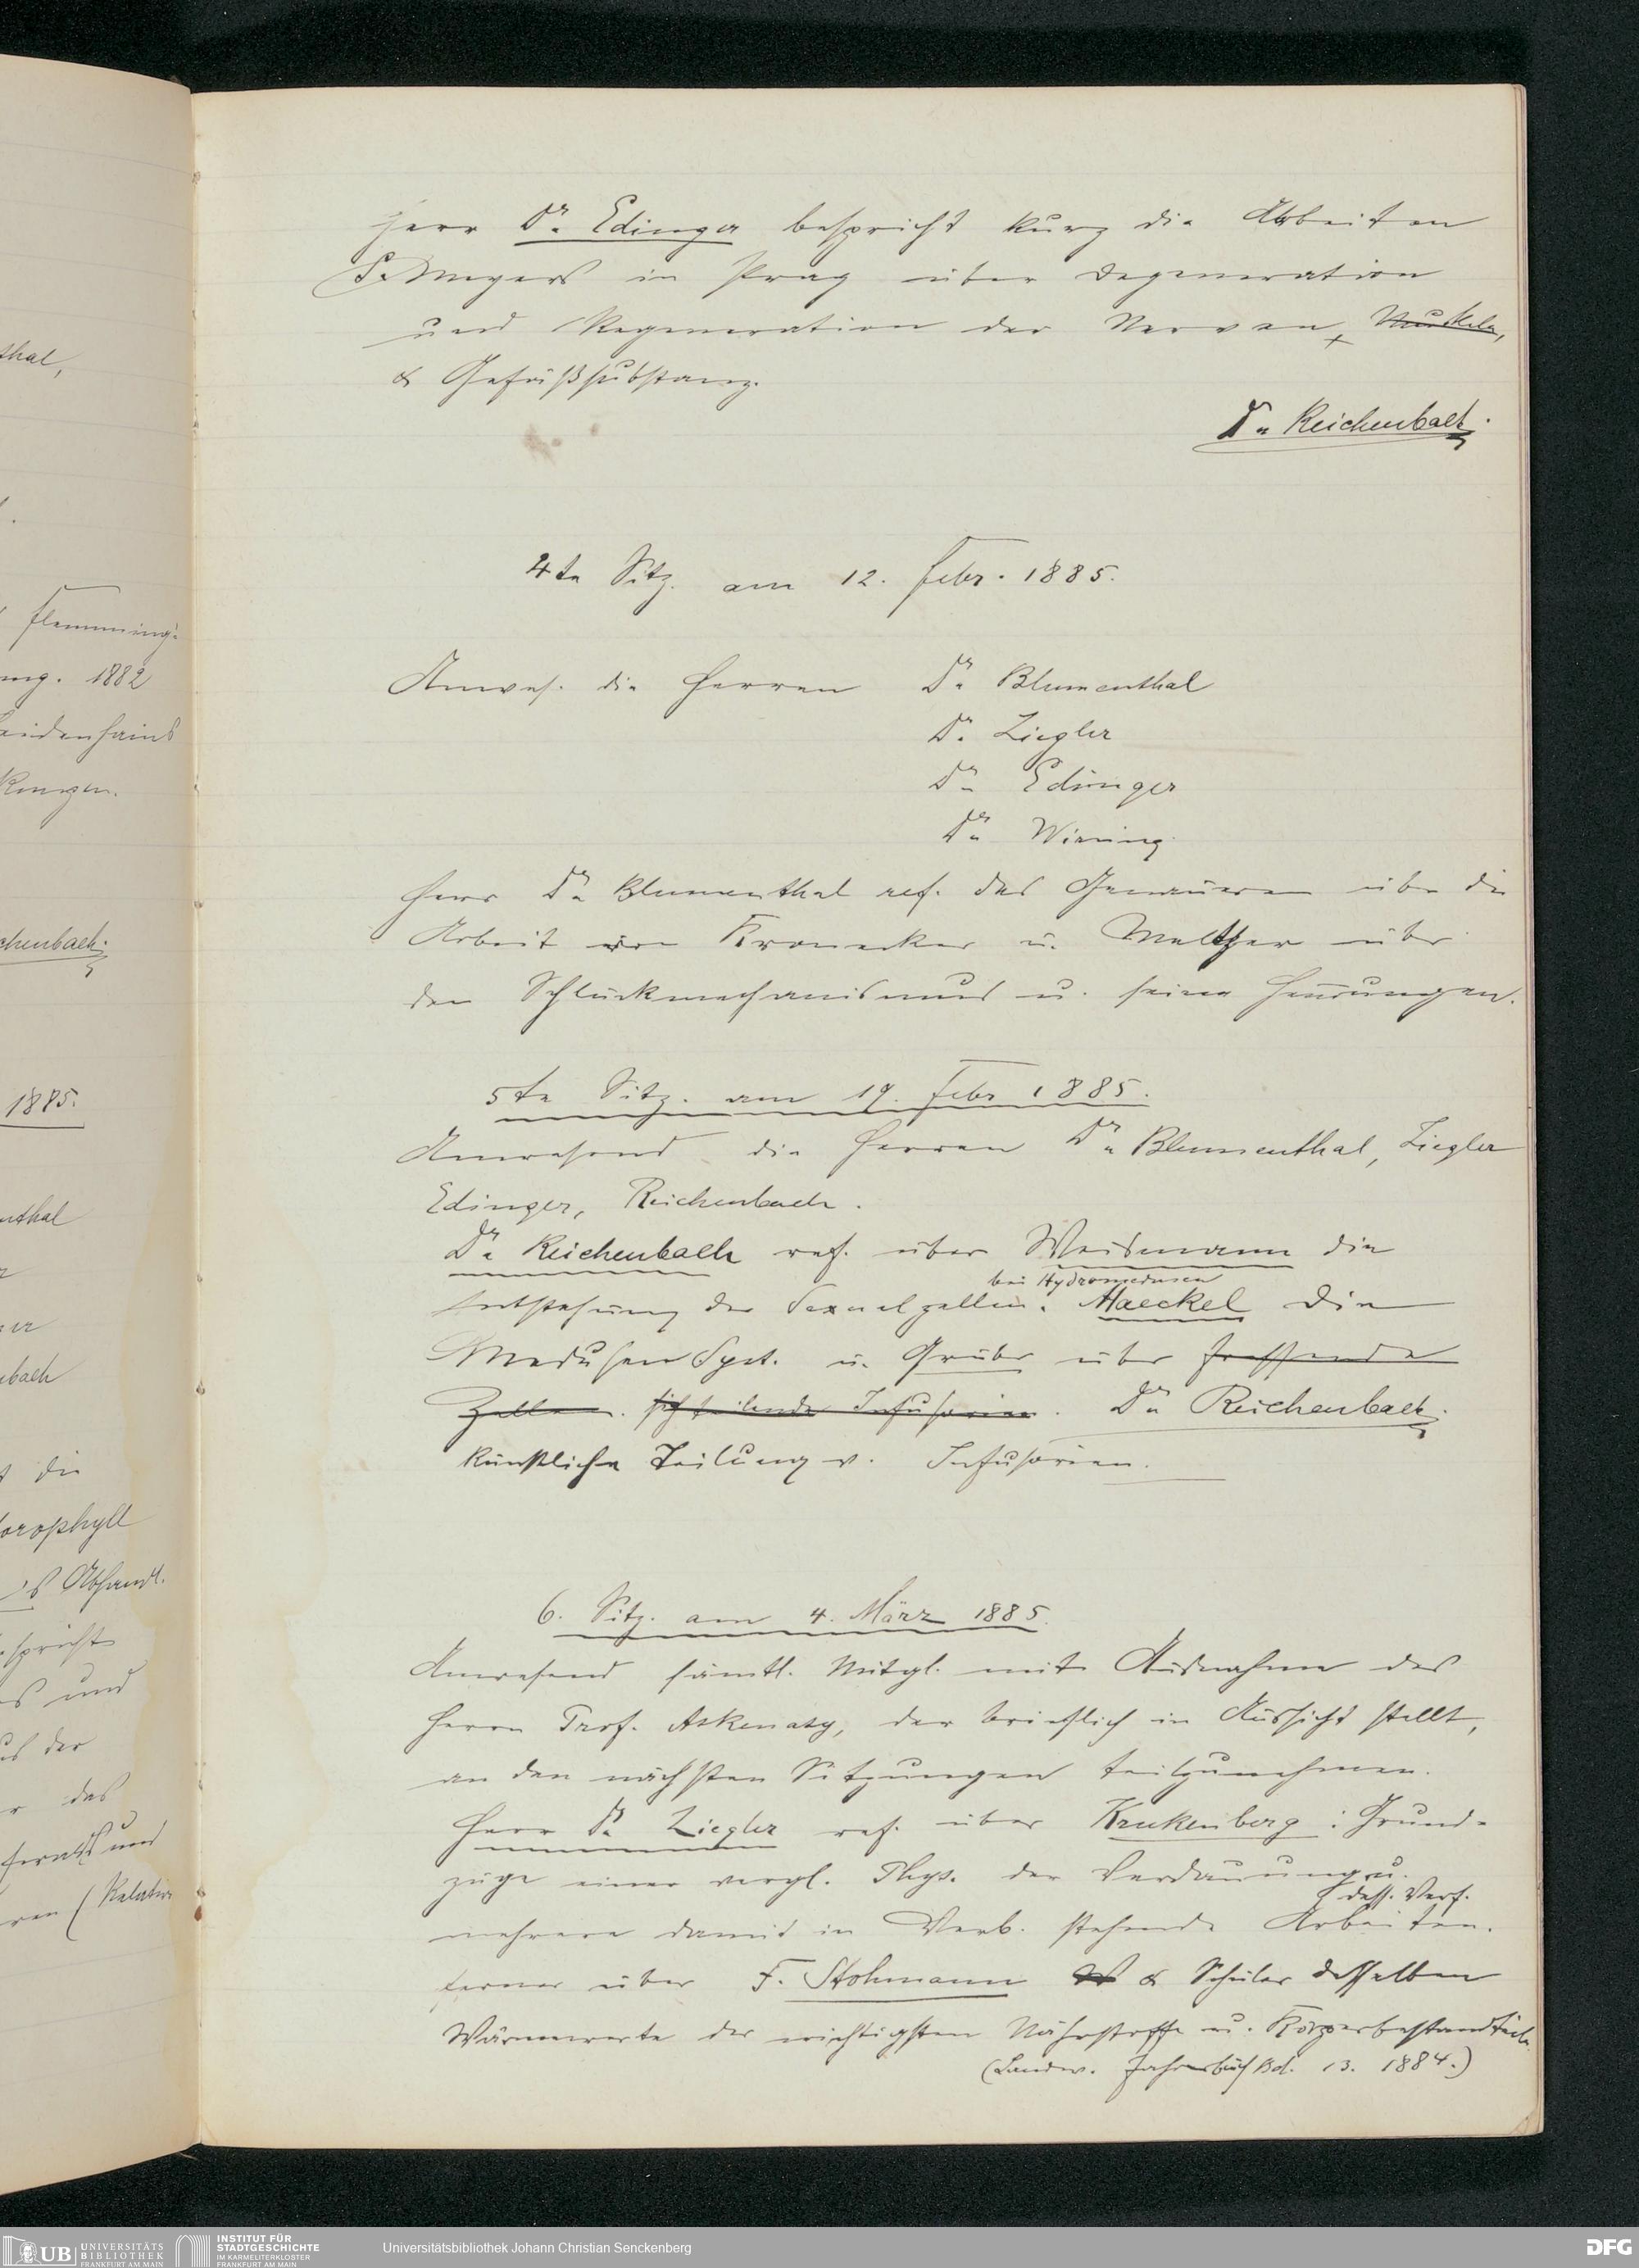 thal,
Flemming's
ung. 1882
eidenhains
chenbach.
1885.
nthal
er
bach
t die
lorophyll
's Abhandl.
espricht
es und
us der
r das
und
ren (Relativ
Herr Dr. Edinger bespricht kurz die Arbeiten
S. Mayers in Prag über Degeneration
und Regeneration der Nerven, Muskeln,
& Gefäßsubstanz.
Dr. Reichenbach.
4te Sitz. am 12. Febr. 1885.
Anwes. die Herren Dr. Blumenthal
Dr. Ziegler
Dr. Edinger
Dr. Wirsing.
Herr Dr. Blumenthal ref. des Genaueren über die
Arbeit von Kronecker u. Meltzer über
den Schluckmechanismus u. seine Hemungen.
5te Sitz. am 19. Febr 1885.
Anwesend die Herren Dr. Blumenthal, Ziegler
Edinger, Reichenbach.
Dr. Reichenbach ref. über Weismann die
bei Hydromedusen
Entstehung der Sexualzellen. Haeckel Die
Medusen Syst. u. Gruber über fressende
Zellen. sich teilende Infusorien. Dr. Reichenbach.
künstliche Teilung v. Infusorien.
6. Sitz. am 4. März 1885.
Anwesend sämtl. Mitgl. mit Ausnahme des
Herrn Prof. Askenasy, der brieflich in Aussicht stellt,
an den nächsten Sitzungen teilzunehmen.
Herr Dr. Ziegler ref. über Krukenberg: Grund-
züge einer vergl. Phys. der Verdauung u.
dess. Verf.
mehrere damit in Verb. stehende Arbeiten.
ferner über F. Stohmann & Schüler desselben
Wärmewerte der wichtigsten Nährstoffe u. Körperbestandteile
(Landw. Jahrbuch Bd. 13. 1884.)
UB UNIVERSITÄTS
BIBLIOTHEK
FRANKFURT AM MAIN
INSTITUT FÜR
STADTGESCHICHTE
IM KARMELITERKLOSTER
FRANKFURT AM MAIN
Universitätsbibliothek Johann Christian Senckenberg
DFG